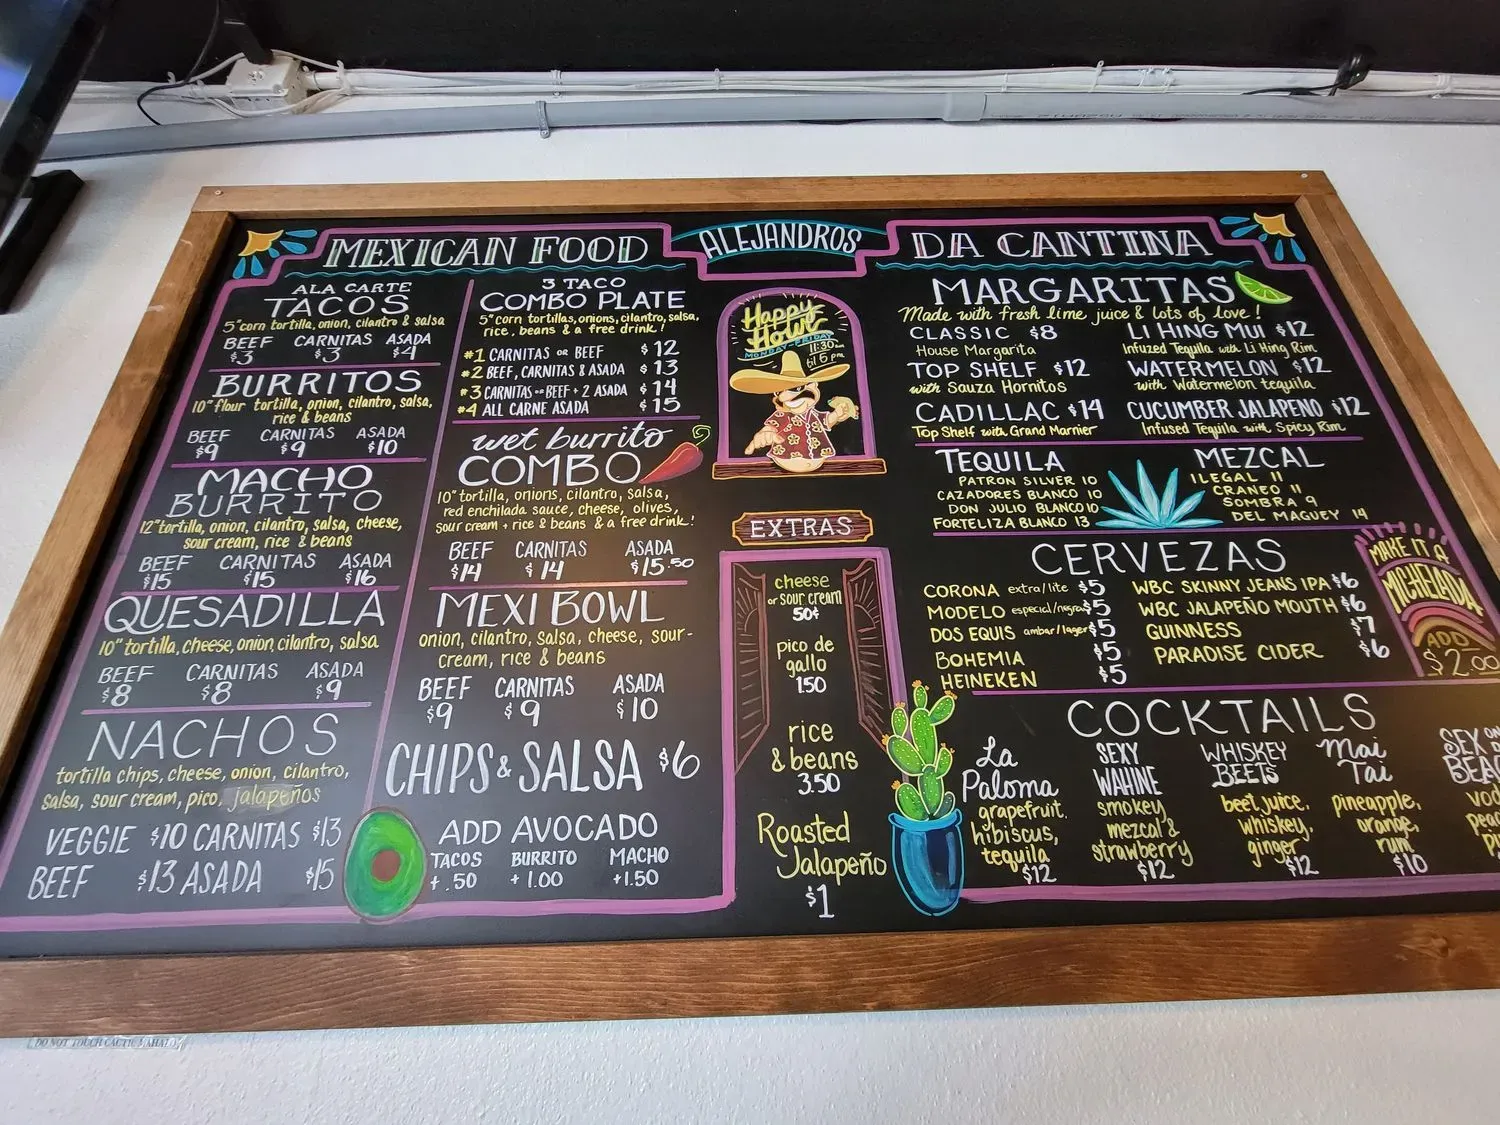 MEXICAN FOOD
ALEJANDROS
DA CANTINA
ALA CARTE
TACOS
5" corn tortilla, onion, cilantro & salsa
BEEF CARNITAS ASADA
$3 $3 $4
BURRITOS
10" flour tortilla, onion, cilantro, salsa,
rice & beans
BEEF CARNITAS ASADA
$9 $9 $10
MACHO
BURRITO
12" tortilla, onion, cilantro, salsa, cheese,
sour cream, rice & beans
BEEF CARNITAS ASADA
$15 $15 $16
QUESADILLA
10" tortilla, cheese, onion, cilantro, salsa
BEEF CARNITAS ASADA
$8 $8 $9
NACHOS
tortilla chips, cheese, onion, cilantro,
salsa, sour cream, pico, jalapeños
VEGGIE $10 CARNITAS $13
BEEF $13 ASADA $15
3 TACO
COMBO PLATE
5" corn tortillas, onions, cilantro, salsa,
rice, beans & a free drink!
#1 CARNITAS OR BEEF $12
#2 BEEF, CARNITAS & ASADA $13
#3 CARNITAS OR BEEF + 2 ASADA $14
#4 ALL CARNE ASADA $15
wet burrito
COMBO
10" tortilla, onions, cilantro, salsa,
red enchilada sauce, cheese, olives,
sour cream + rice & beans & a free drink!
BEEF CARNITAS ASADA
$14 $14 $15.50
MEXI BOWL
onion, cilantro, salsa, cheese, sour-
cream, rice & beans
BEEF CARNITAS ASADA
$9 $9 $10
CHIPS & SALSA $6
ADD AVOCADO
TACOS BURRITO MACHO
+.50 +1.00 +1.50
Happy
Howr
MONDAY-FRIDAY
11:30am
til 5 pm
EXTRAS
cheese
or sour cream
50¢
pico de
gallo
1.50
rice
& beans
3.50
Roasted
Jalapeño
$1
MARGARITAS
Made with fresh lime juice & lots of love!
CLASSIC $8
House Margarita
TOP SHELF $12
with Sauza Hornitos
CADILLAC $14
Top Shelf with Grand Marnier
LI HING MUI $12
Infuzed Tequila with Li Hing Rim
WATERMELON $12
with Watermelon tequila
CUCUMBER JALAPENO $12
Infused Tequila with Spicy Rim
TEQUILA
PATRON SILVER 10
CAZADORES BLANCO 10
DON JULIO BLANCO 10
FORTELIZA BLANCO 13
MEZCAL
ILEGAL 11
CRANEO 11
SOMBRA 9
DEL MAGUEY 14
CERVEZAS
CORONA extra/lite $5
MODELO especial/negra $5
DOS EQUIS ambar/lager $5
BOHEMIA $5
HEINEKEN $5
WBC SKINNY JEANS IPA $6
WBC JALAPEÑO MOUTH $6
GUINNESS $7
PARADISE CIDER $6
MAKE IT A
MICHELADA
ADD
$2.00
COCKTAILS
La
Paloma
grapefruit,
hibiscus,
tequila
$12
SEXY
WAHINE
smokey
mezcal &
strawberry
$12
WHISKEY
BEETS
beet juice,
whiskey,
ginger
$12
Mai
Tai
pineapple,
orange,
rum
$10
SEX ON
BEA
vod
pea
DO NOT TOUCH